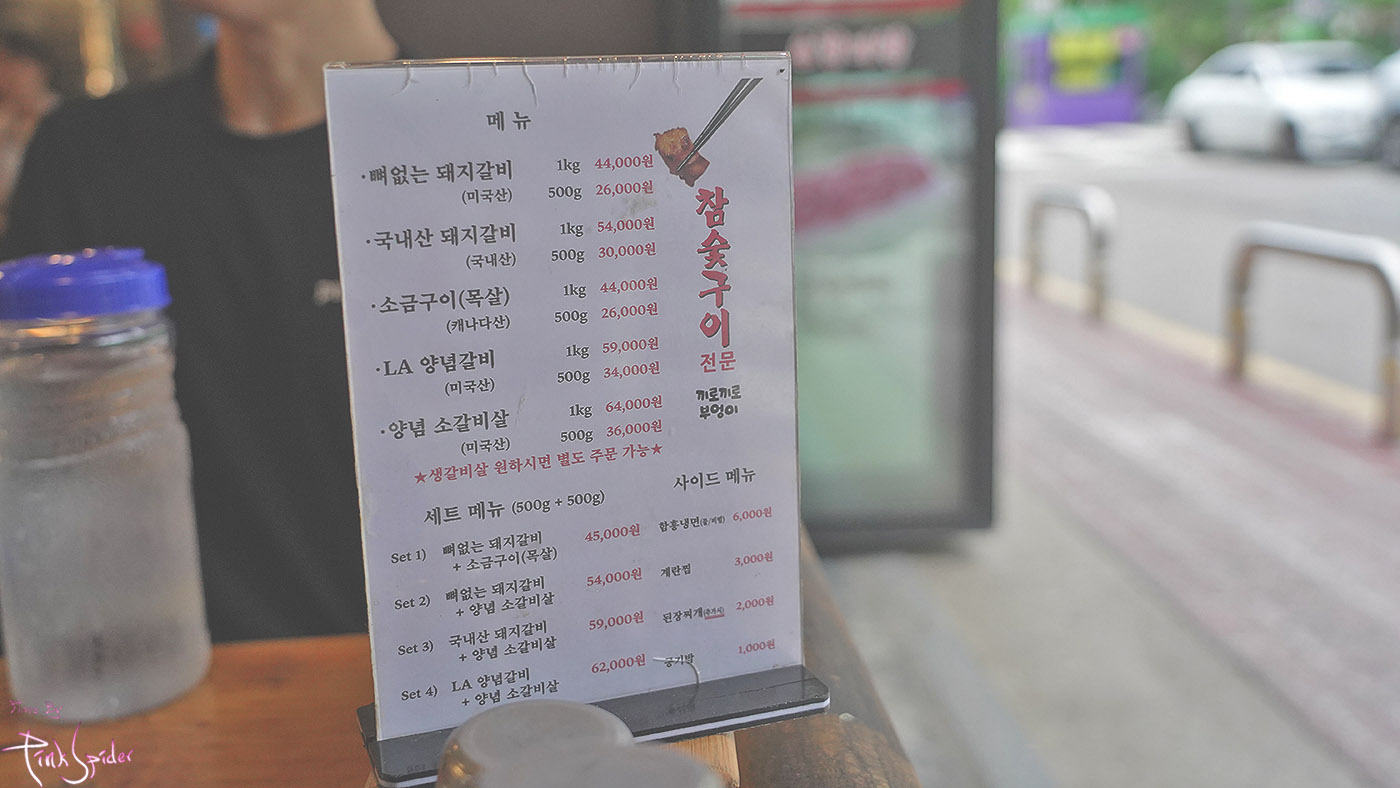 메뉴
·뼈없는 돼지갈비 1kg 44,000원
(미국산) 500g 26,000원
·국내산 돼지갈비 1kg 54,000원
(국내산) 500g 30,000원
·소금구이(목살) 1kg 44,000원
(캐나다산) 500g 26,000원
·LA 양념갈비 1kg 59,000원
(미국산) 500g 34,000원
·양념 소갈비살 1kg 64,000원
(미국산) 500g 36,000원
★생갈비살 원하시면 별도 주문 가능★
참숯구이
전문
끼로끼로
부엉이
세트 메뉴 (500g + 500g)
Set 1) 뼈없는 돼지갈비 45,000원
+ 소금구이(목살)
Set 2) 뼈없는 돼지갈비 54,000원
+ 양념 소갈비살
Set 3) 국내산 돼지갈비 59,000원
+ 양념 소갈비살
Set 4) LA 양념갈비 62,000원
+ 양념 소갈비살
사이드 메뉴
함흥냉면(물/비빔) 6,000원
계란찜 3,000원
된장찌개(추가시) 2,000원
공기밥 1,000원
Pink Spider